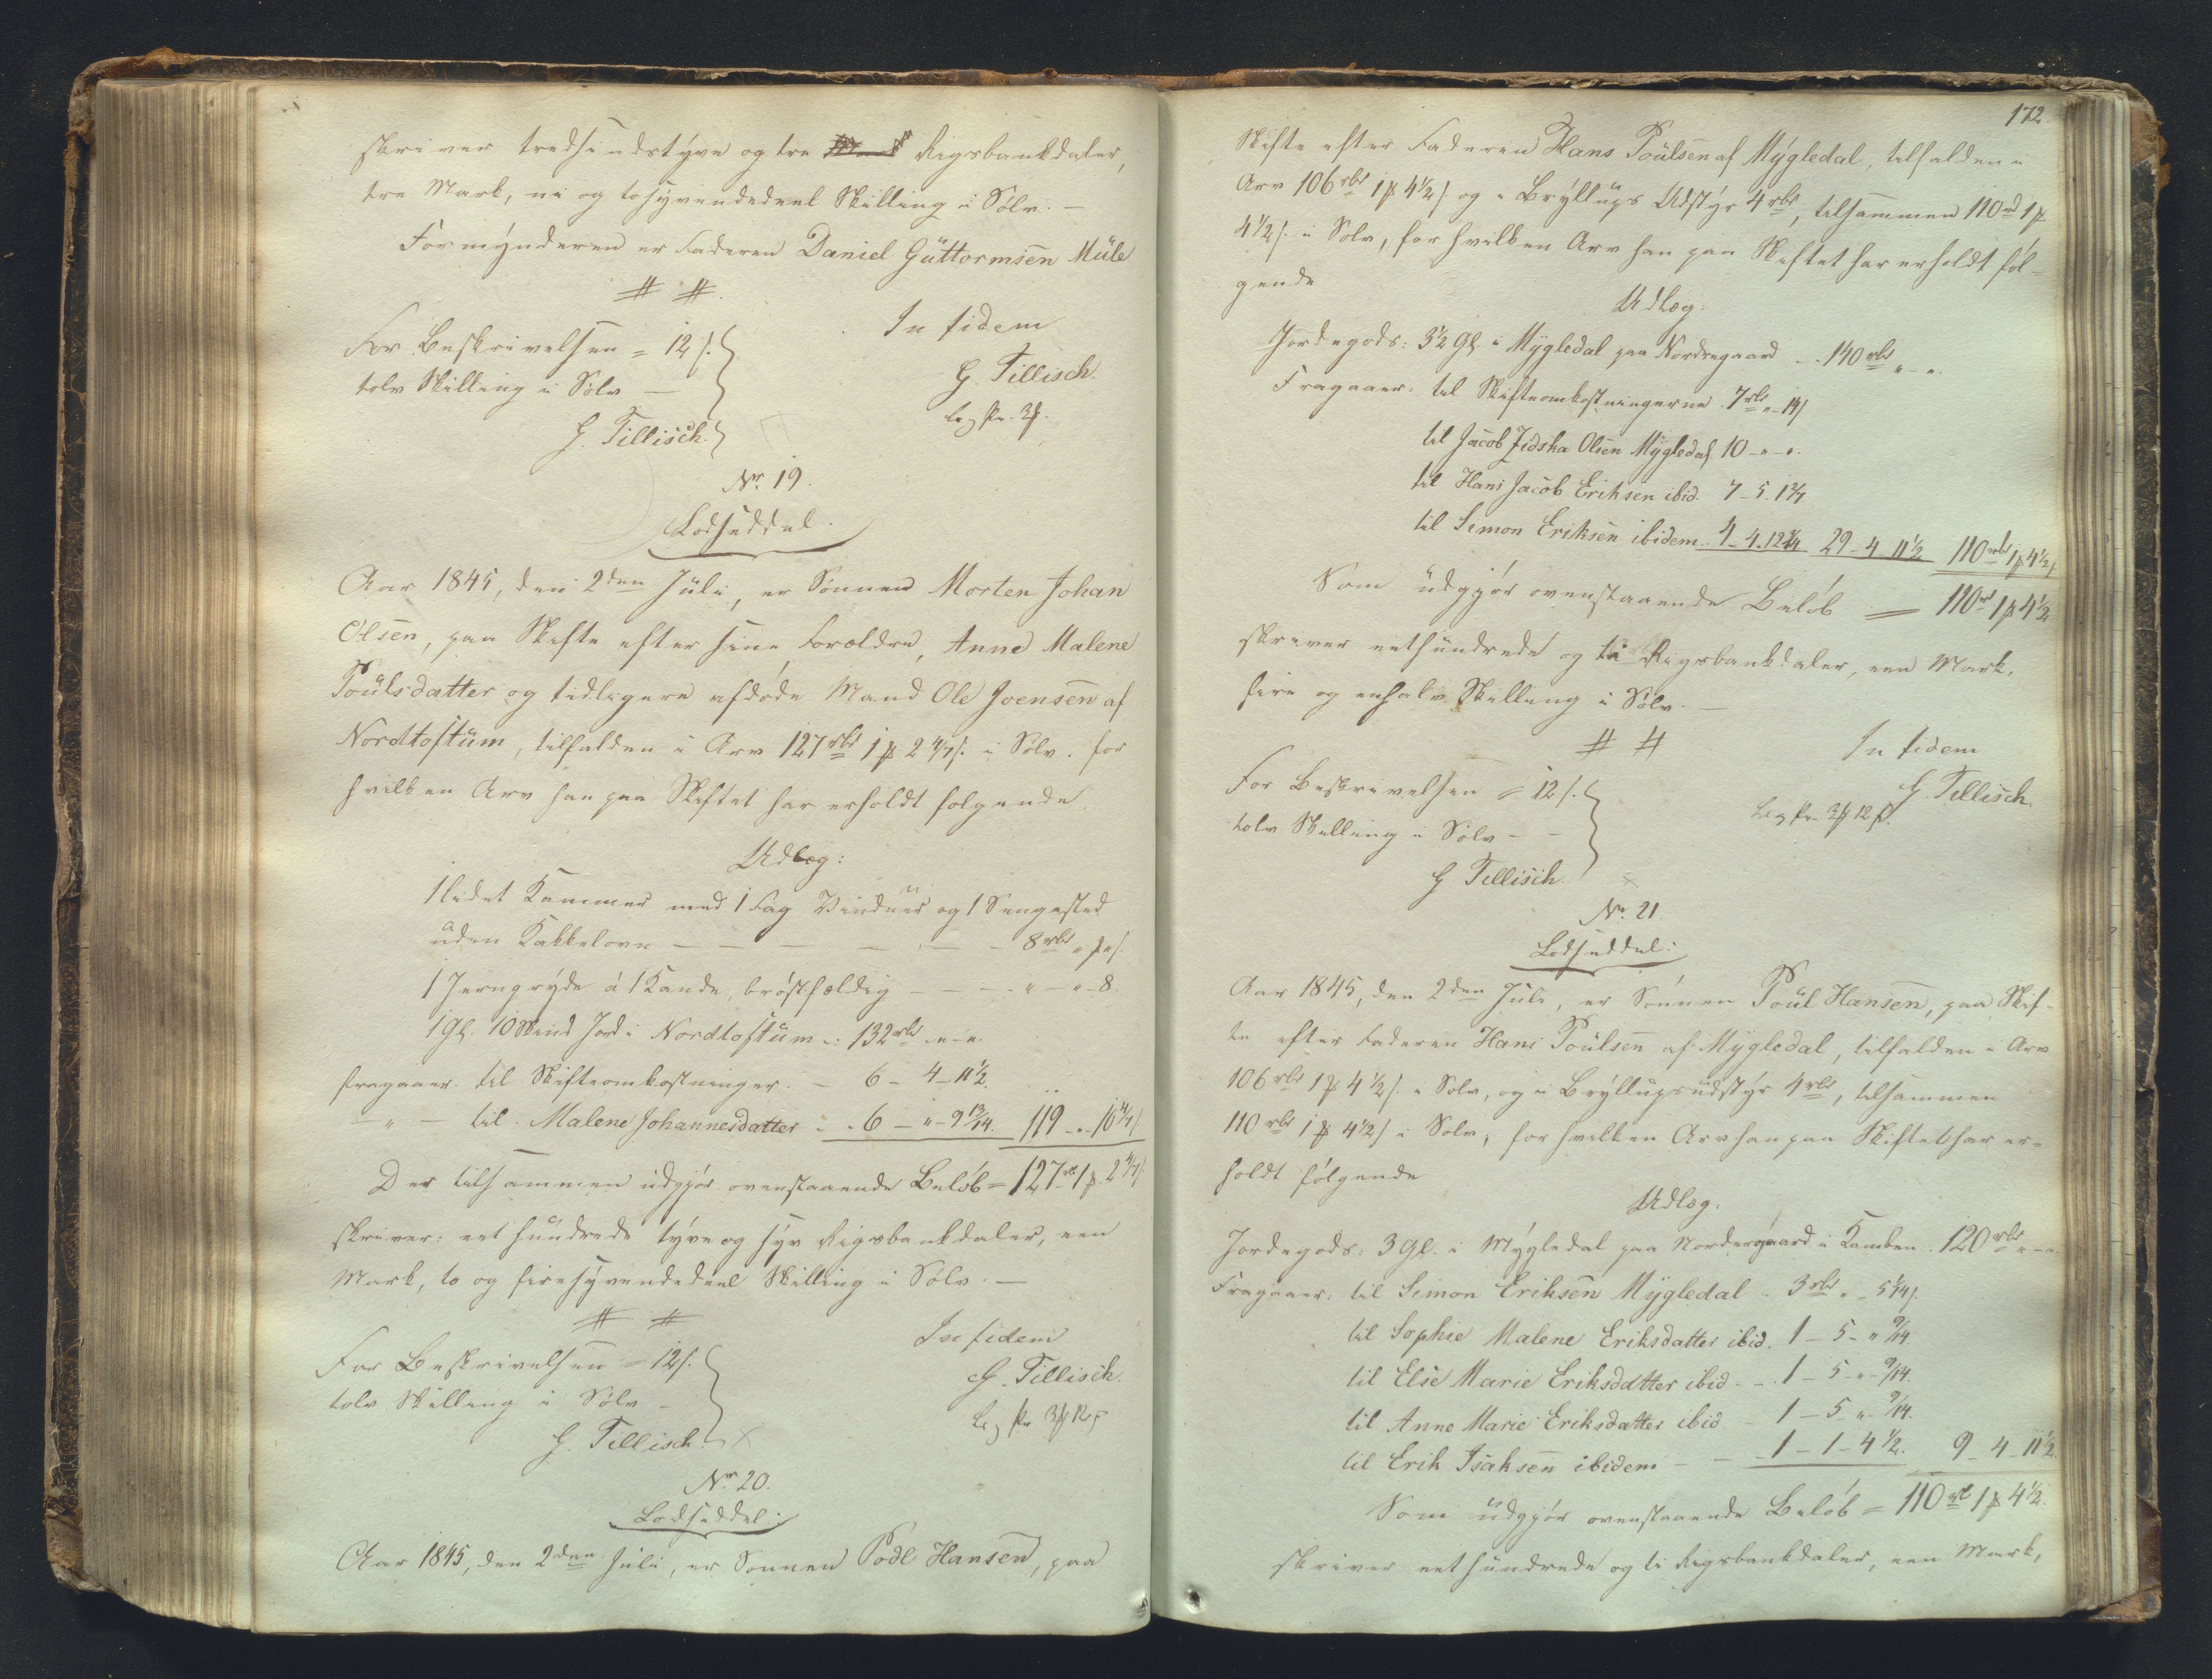 skriver tredsindstyve og tre Rigsbankdaler,
tre Mark, ni og tosyvendedeel Skilling i Sølv. —
Formÿnderen er Faderen Daniel Güttormsen Müle
# #.
For Beskrivelsen = 12 s.
tolv Skilling i Sølv —
G. Tillisch.
In fidem
G. Tillisch.
Nr. 19.
Lodseddel.
Aar 1845, den 2den Jüli, er Sönnen Morten Johan
Olsen, paa Skifte efter sine Forældre, Anne Malene
Poülsdatter og tidligere afdöde Mand Ole Joensen af
Nordtoftüm, tilfalden i Arv 127 rbd 1 ꝑ 2 4/7 s. i Sølv. for
hvilken Arv han paa Skiftet har erholdt følgende
Udlæg:
1 lidet Kammer med 1 Fag Vindüer og 1 Sengested
üden Kakkelovn — — — — — — 8 rbd " ꝑ " s.
1 Jerngrÿde á 1 Kande, bröstfældig — — — " — " — 8.
1 Gl. 10 Skind Jord i Nordtoftüm .: 132 rbd " — ".
fragaaer. til Skifteomkostninger. — 6 — 4 — 11 1/2.
— " — til Malene Johannesdatter . . 6 — " — 9 13/14. 119 — " — 10 4/7 s
Der tilsammen üdgjör ovenstaaende Belöb = 127 rb 1 ꝑ 2 4/7 s
skriver: eet hündrede tÿve og sÿv Rigsbankdaler, een
Mark, to og firesÿvendedeel Skilling i Sølv. —
# #
For Beskrivelsen = 12 s.
tolv Skilling i Sølv —
G. Tillisch.
In fidem
G. Tillisch.
Nr. 20.
Lodseddel:
Aar 1845, den 2den Jüli, er Sönnen Podl Hansen, paa
172.
Skifte efter Faderen Hans Poülsen af Mÿgledal, tilfalden i
Arv 106 rbd 1 ꝑ 4 1/2 s. og i Brÿllüps Udstÿr 4 rbd, tilsammen 110 rbd 1 ꝑ
4 1/2 s. i Sølv, for hvilken Arv han paa Skiftet har erholdt föl-
gende
Udlæg:
Jordegods: 3 1/2 Gl. i Mÿgledal paa Nordregaard — . 140 rbd " — ".
Fragaaer: til Skifteomkostningerne . 7 rbd " — 14 s
til Jacob Jidska Olsen Mÿgledal 10 — " — ".
til Hans Jacob Eriksen ibid. 7 — 5. 1 2/7
til Simon Eriksen ibidem. 4 — 4. 12 3/14 29 — 4 11 1/2 110 rbd 1 ꝑ 4 1/2 s
Som üdgjör ovenstaaende Belöb = 110 rb 1 ꝑ 4 1/2
skriver eethündrede og ti Rigsbankdaler, een Mark,
fire og enhalv Skilling i Sølv. —
# #
In fidem
For Beskrivelsen = 12 s.
tolv Skilling i Sølv — —
G Tillisch.
G. Tillisch.
Nr. 21.
Lodseddel:
Aar 1845, den 2den Jüli, er Sönnen Poül Hansen, paa Skif-
te efter Faderen Hans Poülsen af Mÿgledal, tilfalden i Arv
106 rbd 1 ꝑ 4 1/2 s. i Sølv, og i Brÿllüpsüdstÿr 4 rbd, tilsammen
110 rbd 1 ꝑ 4 1/2 s i Sølv, for hvilken Arv han paa Skiftet har er-
holdt fölgende
Udlæg.
Jordegods: 3 Gl. i Mÿgledal paa Nordregaard i Kamben . 120 rbd " — ".
Fragaaer: til Simon Eriksen Mÿgledal . 3 rbd " — 5 1/14 s.
til Sophie Malene Eriksdatter ibid. 1 — 5 — " 9/14
til Else Marie Eriksdatter ibid — . 1 — 5 — " — 9/14.
til Anne Marie Eriksdatter ibid — 1 — 5 " — 9/14.
til Erik Isaksen ibidem — — 1 — 1 — 4 1/2. 9 — 4 — 11 1/2
Som üdgjör ovenstaaende Belöb = 110 rb 1 ꝑ 4 1/2.
skriver eethündrede og ti Rigsbankdaler, een Mark,